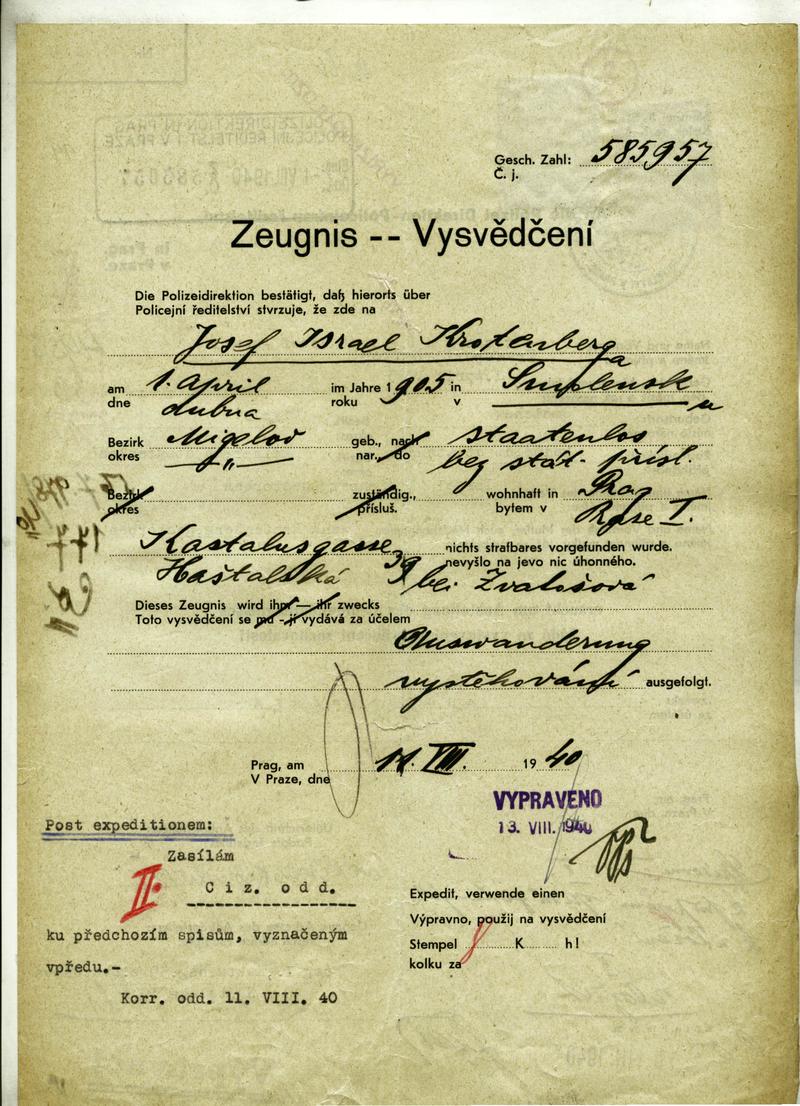 Gesch. Zahl: 585957
Č. j.
Zeugnis -- Vysvědčení
Die Polizeidirektion bestätigt, daß hierorts über
Policejní ředitelství stvrzuje, že zde na
Josef Israel Krotenberga
am 1. April im Jahre 1905 in Smolensk
dne dubna roku v
Bezirk Migelov geb., nach staatenlos
okres — " — nar., do bez stát. přísl.
Bezirk zuständig., wohnhaft in Prag
okres přísluš. bytem v Praze I.
Kastalusgasse nichts strafbares vorgefunden wurde.
Haštalská 9 nevyšlo na jevo nic úhonného.
bei Zvalošová
Dieses Zeugnis wird ihm — ihr zwecks
Toto vysvědčení se mu - jí vydává za účelem
Auswanderung
vystěhování ausgefolgt.
Prag, am 11. VIII. 1940
V Praze, dne
VYPRAVENO
13. VIII. 1940
Post expeditionem:
Zasílám
II.
Ciz. odd.
ku předchozím spisům, vyznačeným
vpředu.-
Korr. odd. 11. VIII. 40
Expedit, verwende einen
Výpravno, použij na vysvědčení
Stempel 8 K h!
kolku za